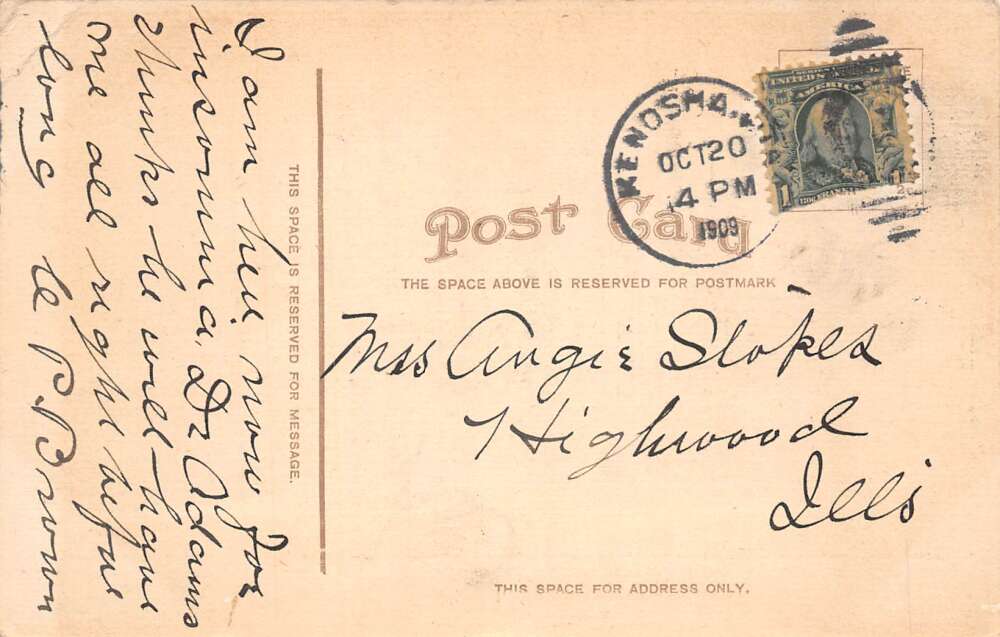 I am here now for
insomnia. Dr Adams
thinks he will have
me all right before
long
C P. Brown
THIS SPACE IS RESERVED FOR MESSAGE.
KENOSHA, WIS
OCT 20
4 PM
1909
UNITED STATES OF
AMERICA
1
Post Card
THE SPACE ABOVE IS RESERVED FOR POSTMARK
Mrs Angie Stokes
Highwood
Ills
THIS SPACE FOR ADDRESS ONLY.